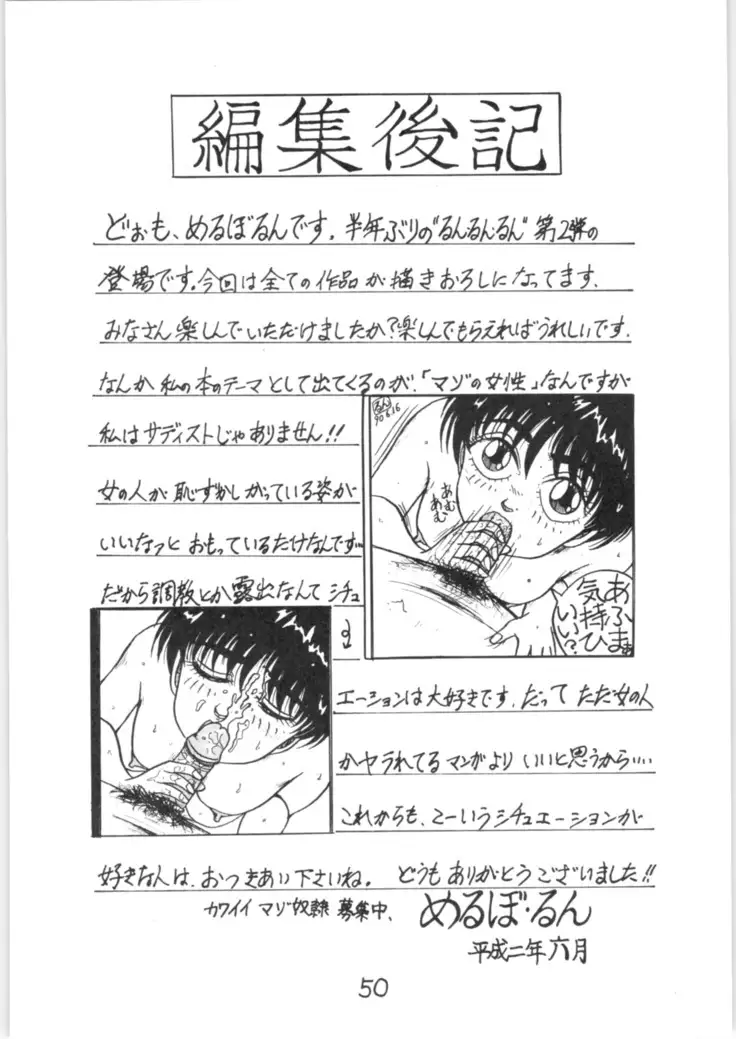 編集後記
どぉも、めるぼるんです。半年ぶりの"るんるんるん"第2弾の
登場です。今回は全ての作品が描きおろしになってます。
みなさん楽しんでいただけましたか?楽しんでもらえればうれしいです。
なんか私の本のテーマとして出てくるのが、「マゾの女性」なんですが
私はサディストじゃありません!!
女の人が恥ずかしがっている姿が
いいなァっとおもっているだけなんです…
だから調教とか露出なんてシチュ
エーションは大好きです。だってただ女の人
がヤラれてるマンガよりいいと思うから‥‥
これからも、こーいうシチュエーションが
好きな人は、おつきあい下さいね。どうもありがとうございました!!
カワイイマゾ奴隷募集中、
めるぼ・るん
平成二年六月
るん
90.6.16
あむ
あむ
あふまぁ
気持ひ
いい?
50